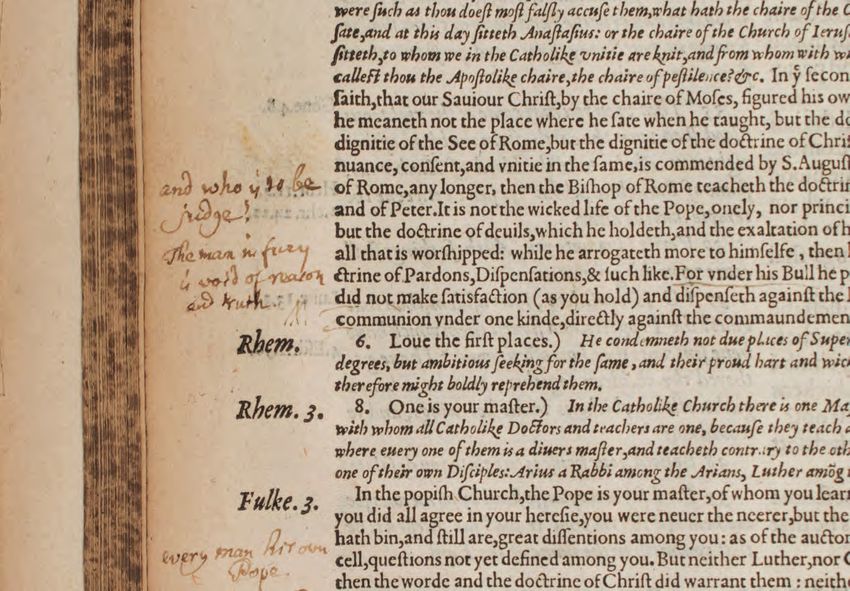 were ſuch as thou doeſt moſt falſly accuſe them,what hath the chaire of the C
ſate,and at this day ſitteth Anaſtaſius: or the chaire of the Church of Ieruſ
ſitteth,to whom we in the Catholike vnitie are knit,and from whom with wi
calleſt thou the Apoſtolike chaire,the chaire of peſtilence?&c. In ẏ ſecon
ſaith,that our Sauiour Chriſt,by the chaire of Moſes, figured his ow
he meaneth not the place where he ſate when he taught, but the do
dignitie of the See of Rome,but the dignitie of the doctrine of Chriſ
nuance, conſent,and vnitie in the ſame,is commended by S.Auguſt
and who is to be
of Rome,any longer, then the Biſhop of Rome teacheth the doctrin
judge?
and of Peter.It is not the wicked life of the Pope,onely, nor princi
but the doctrine of deuils,which he holdeth,and the exaltation of h
The man in fury
all that is worſhipped: while he arrogateth more to himſelfe, then
is void of reason
ctrine of Pardons,Diſpenſations,& ſuch like.For vnder his Bull he p
and truth.
did not make ſatisfaction (as you hold) and diſpenſeth againſt the
communion vnder one kinde,directly againſt the commaundemen
Rhem. 6. Loue the firſt places.) He condemneth not due places of Super
degrees, but ambitious ſeeking for the ſame, and their proud hart and wic
therefore might boldly reprehend them.
Rhem. 3. 8. One is your maſter.) In the Catholike Church there is one Ma
with whom all Catholike Doctors and teachers are one, becauſe they teach
where euery one of them is a diuers maſter,and teacheth contrary to the oth
one of their own Diſciples:Arius a Rabbi among the Arians, Luther amõg
Fulke. 3. In the popiſh Church,the Pope is your maſter,of whom you lear
you did all agree in your hereſie,you were neuer the neerer,but the
hath bin,and ſtill are,great diſſentions among you: as of the auctor
every man his own
cell,queſtions not yet defined among you. But neither Luther,nor C
Pope.
then the worde and the doctrine of Chriſt did warrant them : neith